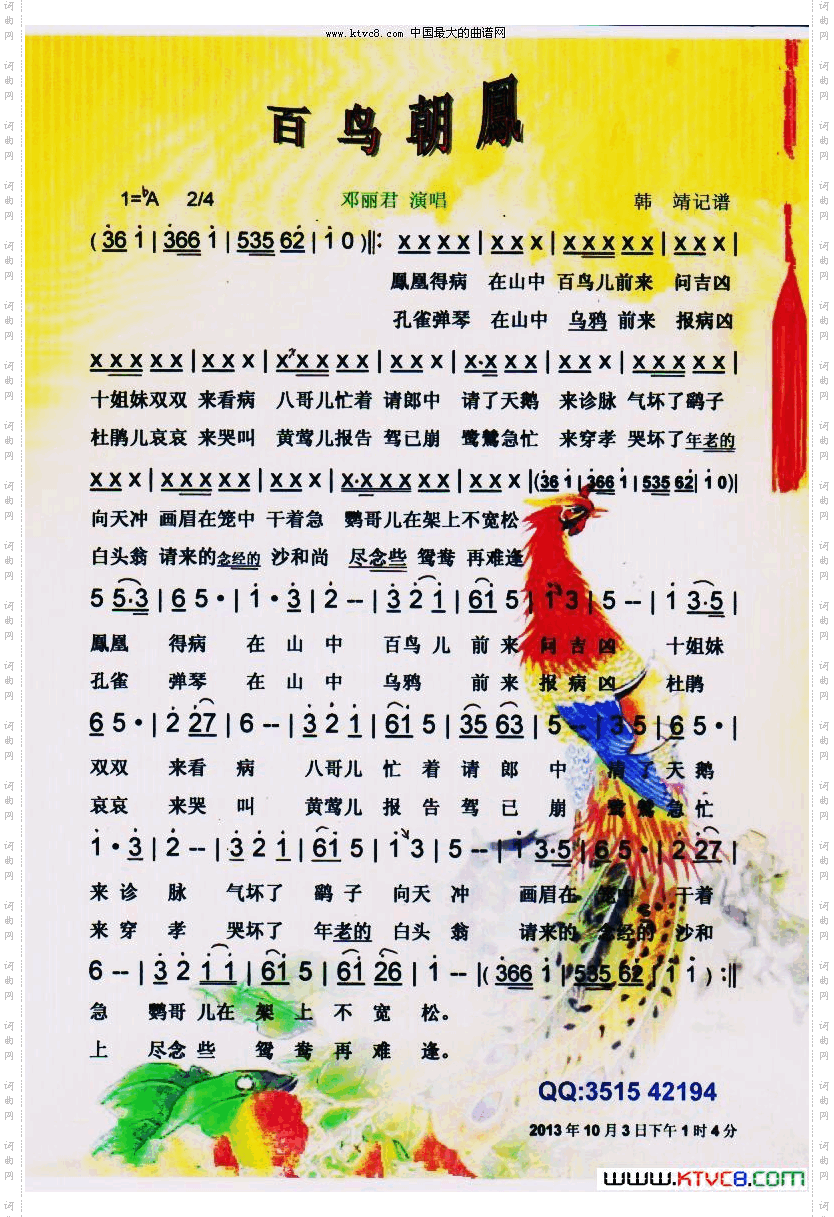 www.ktvc8.com 中国最大的曲谱网
百鸟朝鳳
1=ᵇA 2/4 邓丽君 演唱 韩 靖记谱
( 36 1 | 366 1 | 535 62 | 1 0 )‖: X X X X | X X X | X X X X X | X X X |
鳳凰得病 在山中 百鸟儿前来 问吉凶
孔雀弹琴 在山中 乌鸦 前来 报病凶
X X X X X | X X X | X X X X X | X X X | X·X X X | X X X | X X X X X |
十姐妹双双 来看病 八哥儿忙着 请郎中 请了天鹅 来诊脉 气坏了鹞子
杜鹃儿哀哀 来哭叫 黄莺儿报告 驾已崩 鹭鸶急忙 来穿孝 哭坏了年老的
X X X | X X X X X | X X X | X·X X X X X | X X X | (36 1 | 366 1 | 535 62 | 1 0)|
向天冲 画眉在笼中 干着急 鹦哥儿在架上不宽松
白头翁 请来的念经的 沙和尚 尽念些 鸳鸯 再难逢
5 5·3 | 6 5 · | 1 · 3 | 2 -- | 3 2 1 | 61 5 | 1 3 | 5 -- | 1 3·5 |
鳳凰 得病 在 山 中 百鸟儿 前来 问吉凶 十姐妹
孔雀 弹琴 在 山 中 乌鸦 前来 报病凶 杜鹃
6 5 · | 2 27 | 6 -- | 3 2 1 | 61 5 | 35 63 | 5 -- | 3 5 | 6 5 · |
双双 来看 病 八哥儿 忙 着 请 郎 中 请了天鹅
哀哀 来哭 叫 黄莺儿 报 告 驾 已 崩 鹭鸶急忙
1 · 3 | 2 -- | 3 2 1 | 61 5 | 1 3 | 5 -- | 1 3·5 | 6 5 · | 2 27 |
来 诊 脉 气坏了 鹞子 向天 冲 画眉在 笼中 干着
来 穿 孝 哭坏了 年老的 白头 翁 请来的 念经的 沙和
6 -- | 3 2 1 1 | 61 5 | 61 26 | 1 -- | ( 366 1 | 535 62 | 1 1 ) :‖
急 鹦哥儿在 架 上 不 宽 松。
上 尽念些 鸳 鸯 再 难 逢。
QQ:3515 42194
2013年10月3日下午1时4分
www.KTVC8.com